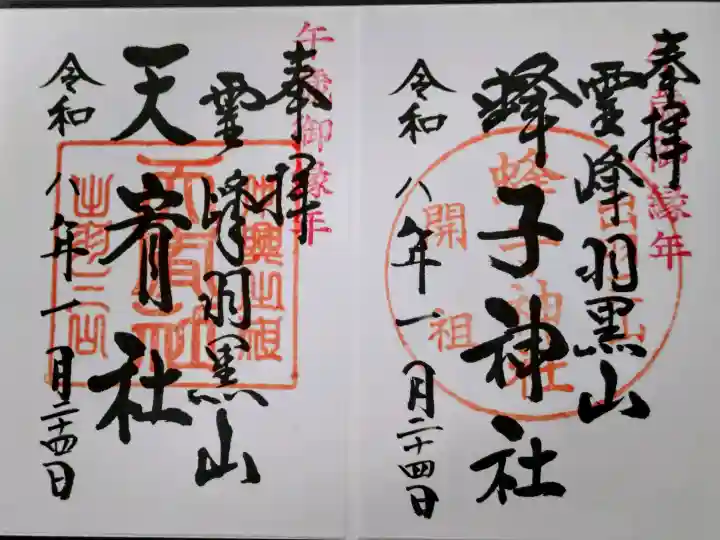 午歳御縁年
奉拝
霊峰羽黒山
出羽三山
蜂子神社
蜂子神社
開祖
令和八年一月二十四日
午歳御縁年
奉拝
霊峰羽黒山
天宥社
天宥社
出羽三山
令和八年一月二十四日